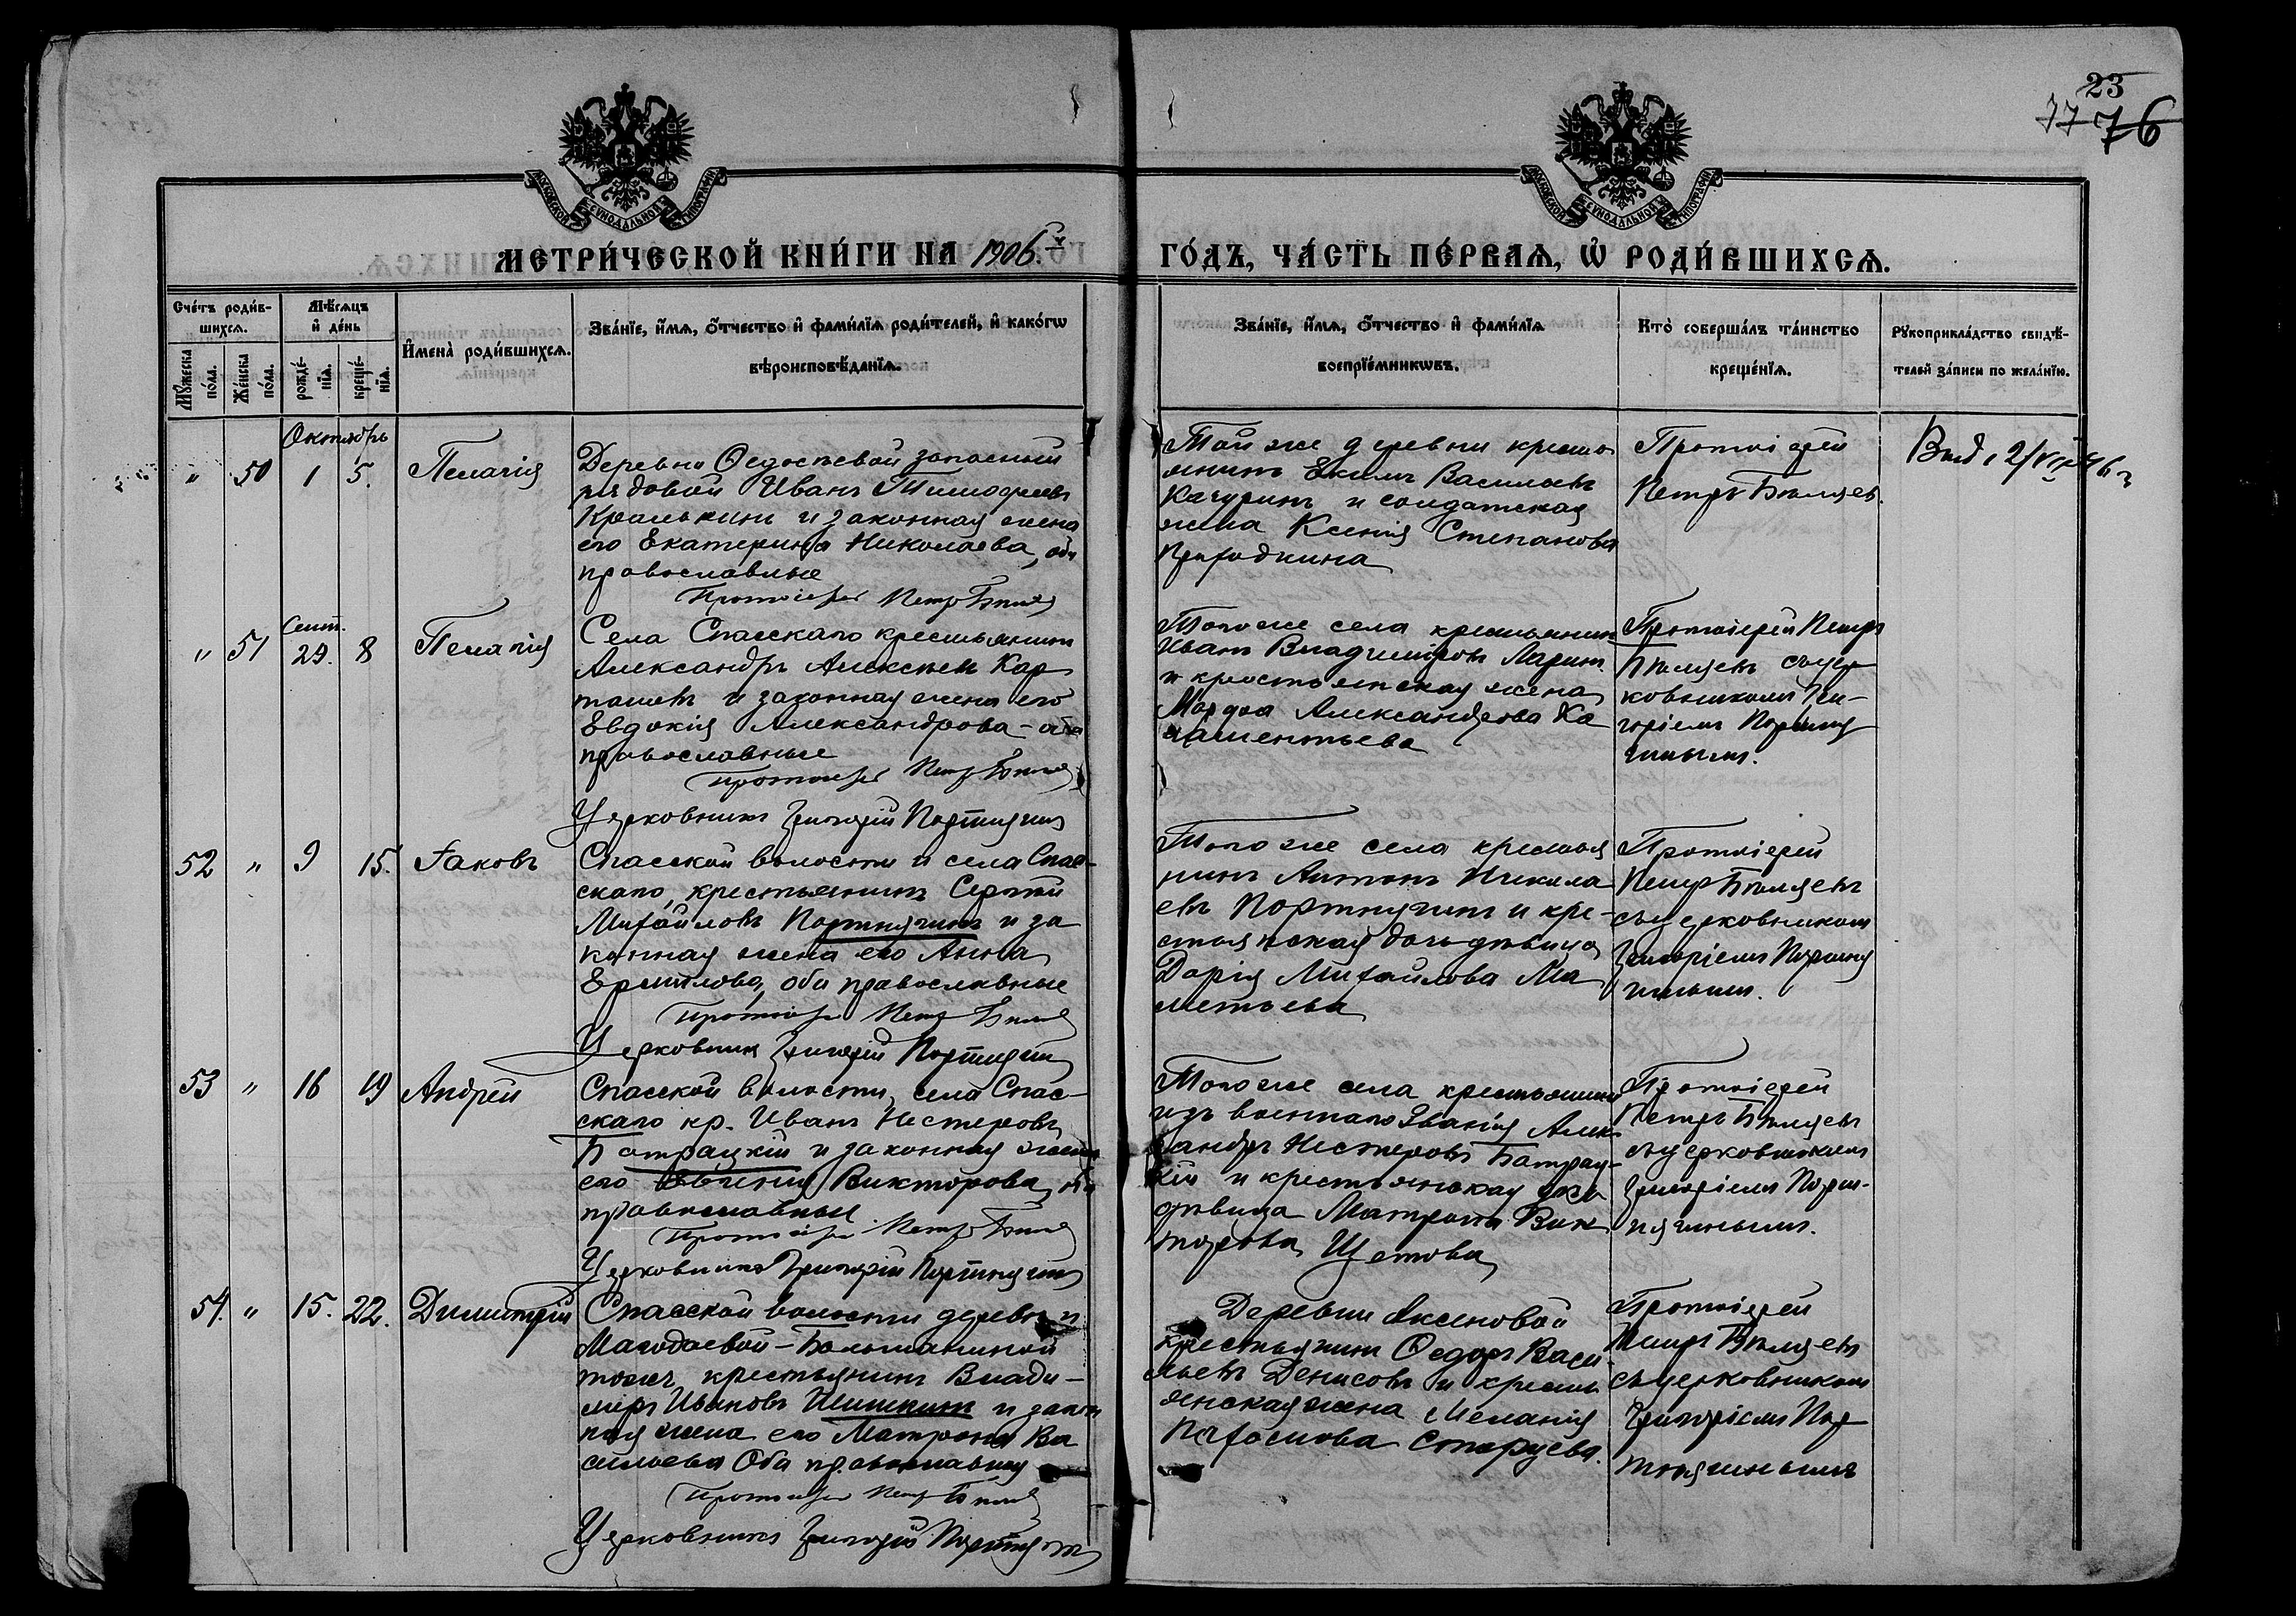 23
77 76
МОСКОВСКОЙ СѴНОДАЛЬНОЙ ТИПОГРАФІИ
МОСКОВСКОЙ СѴНОДАЛЬНОЙ ТИПОГРАФІИ
МЕТРИ́ЧЕСКОЙ КНИ́ГИ НА 1906.й ГО́ДЪ, ЧА́СТЬ ПЕ́РВАѦ, Ѡ҆ РОДИ́ВШИХСѦ.
Сче́тъ роди́в-
шихсѧ.
Мꙋ́жеска
по́ла.
Же́нска
по́ла.
Мѣ́сѧцъ
и҆ де́нь
рожде́-
нїѧ.
креще́-
нїѧ.
И҆мена̀ роди́вшихсѧ.
Зва́нїе, и҆́мѧ, ѻ҆́тчество и҆ фами́лїѧ роди́телей, и҆ како́гѡ
вѣроисповѣ́данїѧ.
Зва́нїе, и҆́мѧ, ѻ҆́тчество и҆ фами́лїѧ
воспрїе́мникѡвъ.
Кто̀ соверша́лъ та́инство
креще́нїѧ.
Рꙋкоприкла́дство свидѣ́-
телей за́писи по жела́нїю.
Октябрь
" 50 1 5. Пелагія
Деревни Ѳедосѣевой запасный
рядовой Иванъ Тимоѳеевъ
Кралькинъ и законная жена
его Екатерина Николаева, оба
православные
Протоіерей Петръ Бѣляевъ
Той же деревни кресть
янинъ Екимъ Васильевъ
Качуринъ и солдатская
жена Ксенія Степанова
Пригодкина
Протоіерей
Петръ Бѣляевъ.
Выд.
Сент.
" 51 29. 8 Пелагія
Села Спасскаго крестьянинъ
Александръ Алексѣевъ Кар
ташевъ и законная жена его
Евдокія Александрова – оба
православные
Протоіерей Петръ Бѣляевъ
Церковникъ Григорій Портнягинъ
Того же села крестьянинъ
Иванъ Владиміровъ Ларинъ
и крестьянская жена
Марѳа Александрова Ка
ламентьева
Протоіерей Петръ
Бѣляевъ съ цер
ковникомъ Гри-
горіемъ Портня
гинымъ.
52 " 9 15. Іаковъ
Спасской волости и села Спас-
скаго, крестьянинъ Сергѣй
Михайловъ Портнягинъ и за
конная жена его Анна
Ермилова, оба православные
Протоіерей Петръ Бѣляевъ
Церковникъ Григорій Портнягинъ
Того же села крестья
нинъ Антонъ Никола
евъ Портнягинъ и кре-
стьянская дочь дѣвица
Дарія Михайлова Ма
метьева
Протоіерей
Петръ Бѣляевъ
съ церковникомъ
Григоріемъ Портня
гинымъ.
53 " 16 19 Андрей
Спасской волости, села Спас-
скаго кр. Иванъ Нестеровъ
Батрацкій и законная жена
его Евгенія Викторова, оба
православные
Протоіерей Петръ Бѣляевъ
Церковникъ Григорій Портнягинъ
Того же села крестьянинъ
изъ военнаго званія Алек
сандръ Нестеровъ Батрац-
кій и крестьянская дочь
дѣвица Матрона Вик
торова Щетова
Протоіерей
Петръ Бѣляевъ
съ церковникомъ
Григоріемъ Порт-
нягинымъ.
54. " 15. 22. Димитрій
Спасской волости деревни
Магодаевой – Большаниной
тожъ, крестьянинъ Влади-
міръ Ивановъ Шишкинъ и закон
ная жена его Матрона Ва
сильева Оба православные
Протоіерей Петръ Бѣляевъ
Церковникъ Григорій Портнягинъ
Деревни Аксеновой
крестьянинъ Ѳедоръ Васи
льевъ Денисовъ и кресть
янская жена Меланія
Пахомова Старцева.
Протоіерей
Петръ Бѣляевъ
съ церковникомъ
Григоріемъ Пор
тнягинымъ